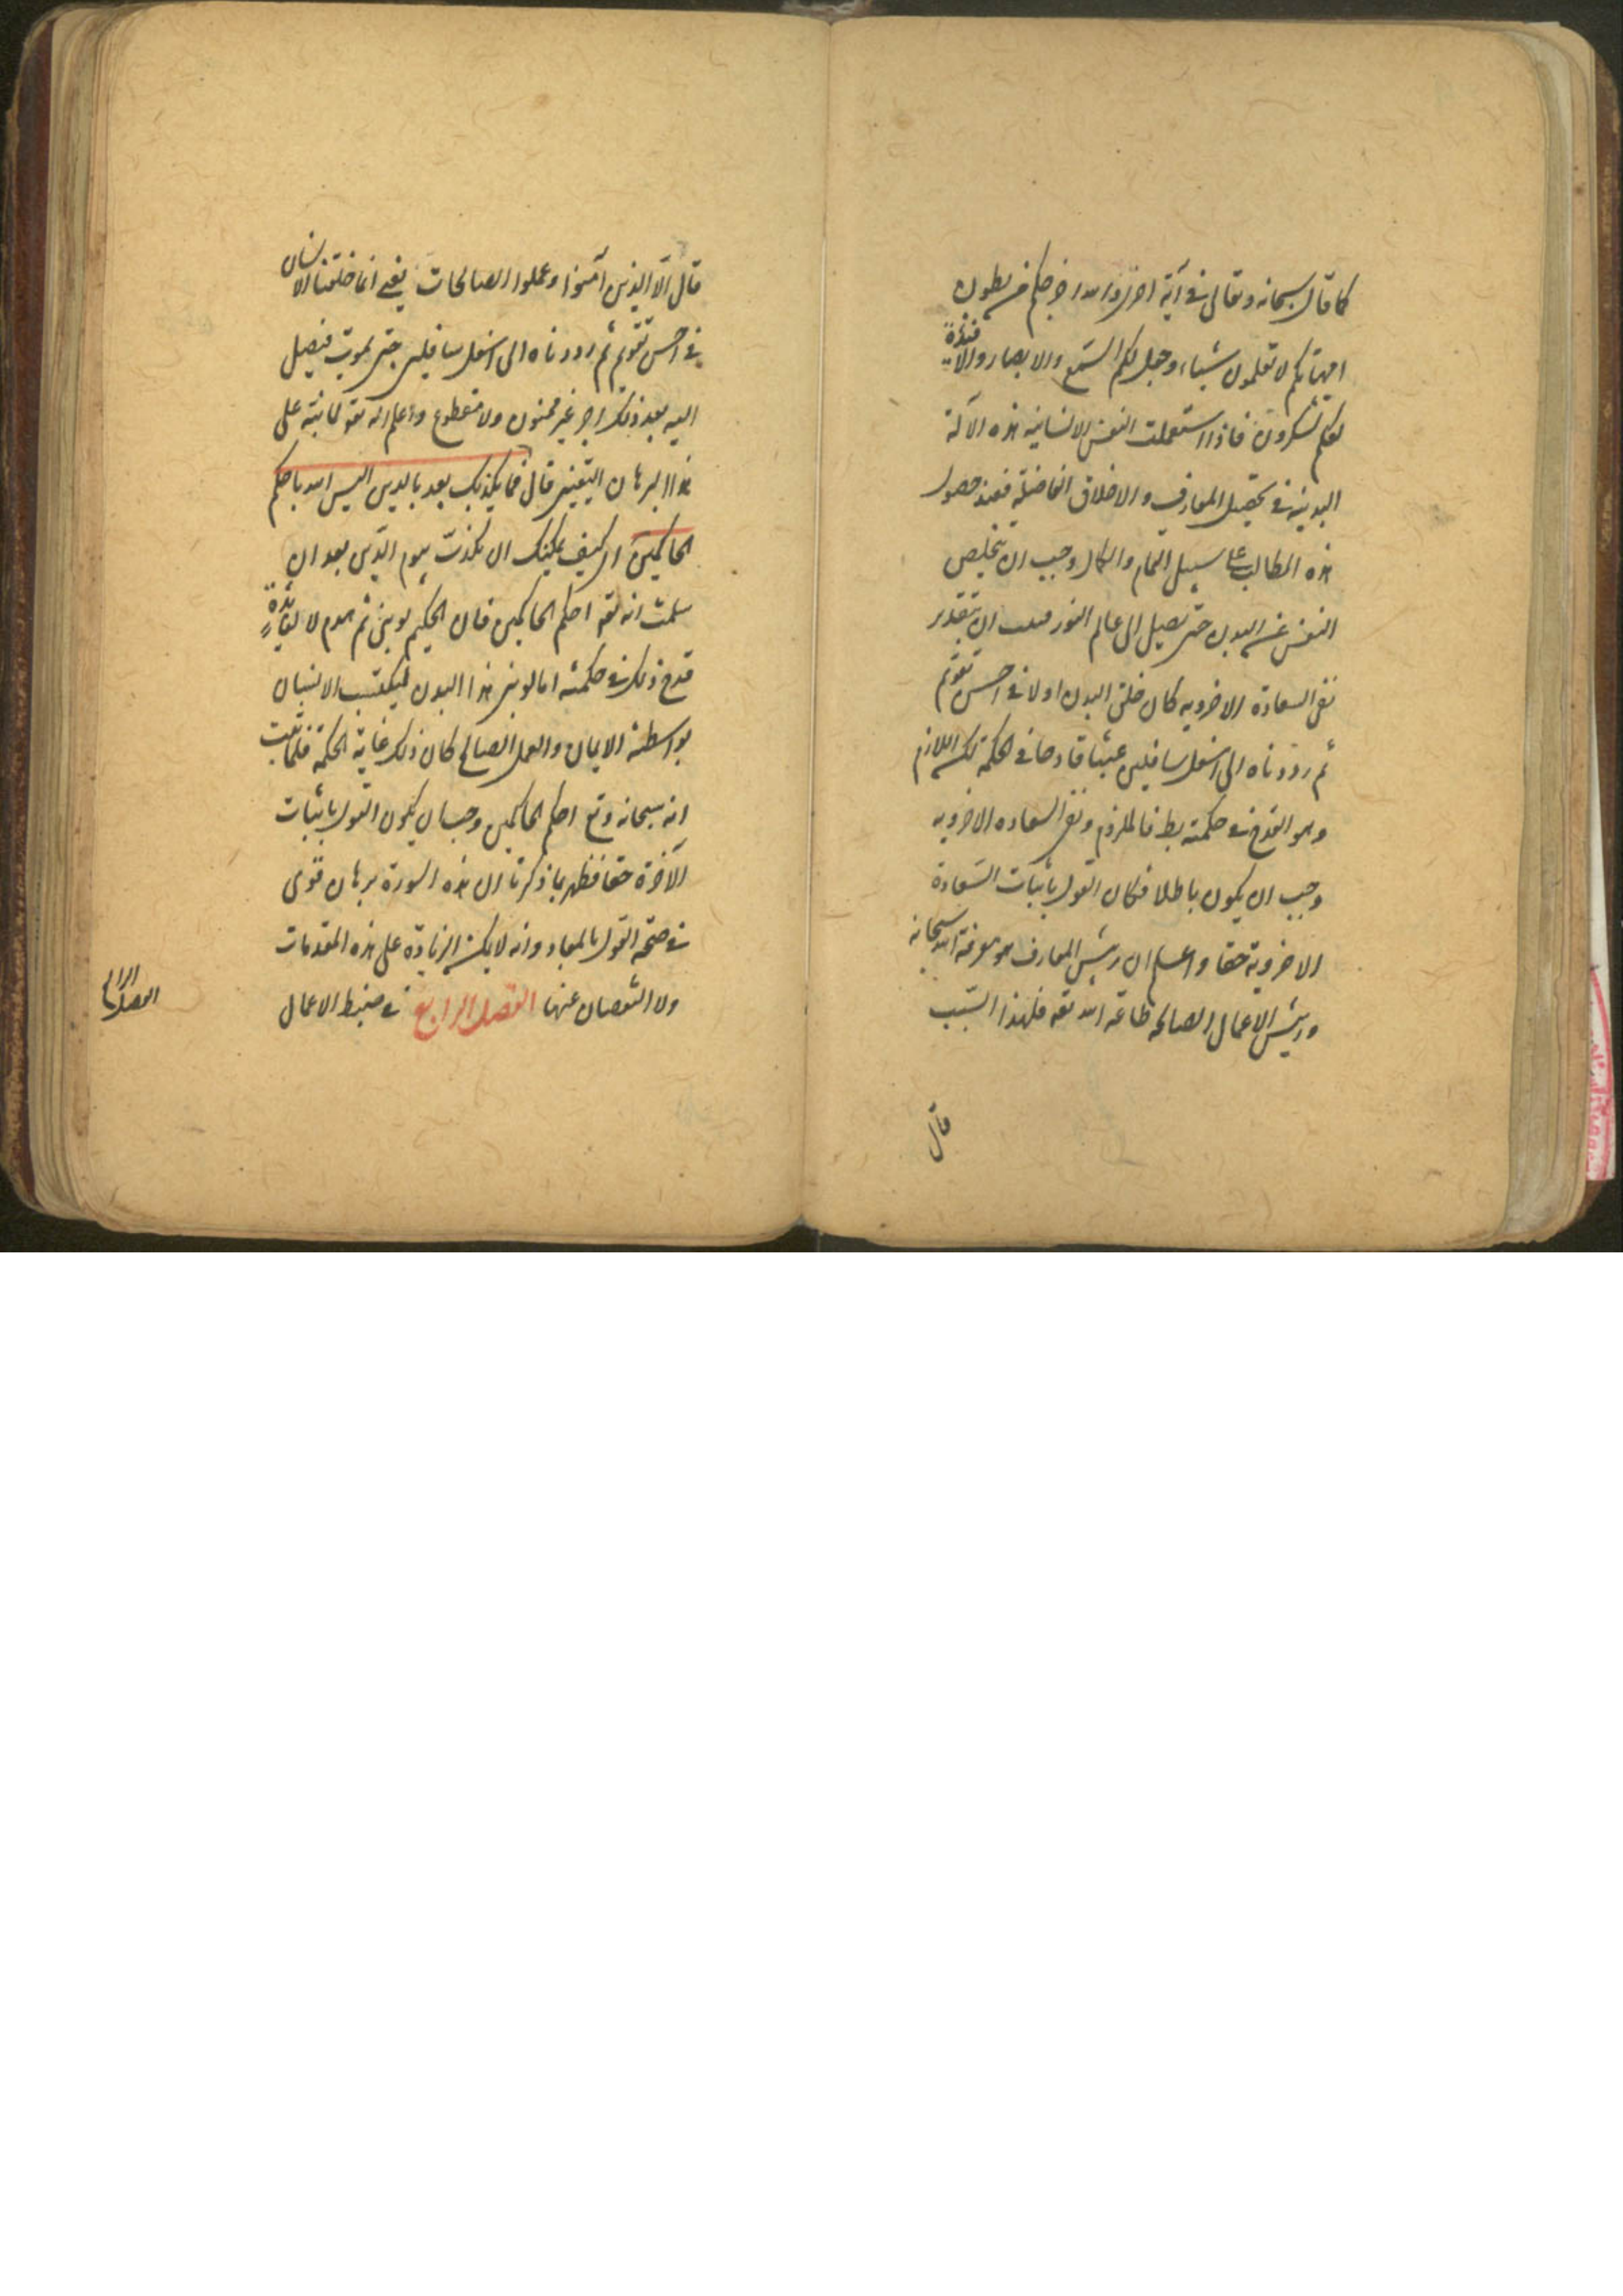 كما قال سبحانه وتعالى في آية اخرى والله اخرجكم من بطون
امهاتكم لا تعلمون شيئاء وجعل لكم السّمع والابصار والافئدة
لعلكم تشكرون فاذا استعملت النفس الانسانية هذه الآلة
البدنية في تحصيل المعارف والاخلاق الفاضلة فعند حصول
هذه المطالب على سبيل التمام والكمال وجب ان يتخلص
النفس عن البدن حتى تصل الى عالم النور ان بتقدير
نفى السعادة الاخروية كان خلق البدن اولا في احسن تقويم
ثم رددناه الى اسفل سافلين عبثا قادحا في الحكمة لكن اللازم
وهو القدح في حكمته بط فالملزوم ونفى السعاده الاخرويه
وجب ان يكون باطلا فكان القول باثبات السّعادة
الاخروية حقا واعلم ان رئيس المعارف هو معرفة الله سبحانه
ورئيس الاعمال الصالحه طاعة الله تعه فلهذا السّبب
قال
قال الّا الذين آمنوا وعملوا الصالحات يعنى انا خلقنا الانسان
في احسن تقويم ثم رددناه الى اسفل سافلين حتى يموت فيصل
اليه بعد ذلك اجر غير ممنون ولا مقطوع واعلم انه تعه لما نبّه على
هذا البرهان اليقينى قال فما يكذبك بعد بالدين اليس الله باحكم
الحاكمين اى كيف يمكنك ان تكذب بيوم الدّين بعد ان
سلمت انه تعه احكم الحاكمين فان الحكيم لو بنى ثم هدم لا لفائدة
قدح ذلك في حكمته اما لو بنى هذا البدن ليكتسب الانسان
بواسطته الايمان والعمل الصالح كان ذلك غاية الحكمة فلما ثبت
انه سبحانه وتع احكم الحاكمين وجب ان يكون القول باثبات
الآخرة حقا فظهر بما ذكرنا ان هذه السورة برهان قوى
في صحّة القول بالمعاد وانه لا يمكن الزيادة على هذه المقدمات
ولا النقصان عنها الفصل الرابع في ضبط الاعمال
الفصل الرابع